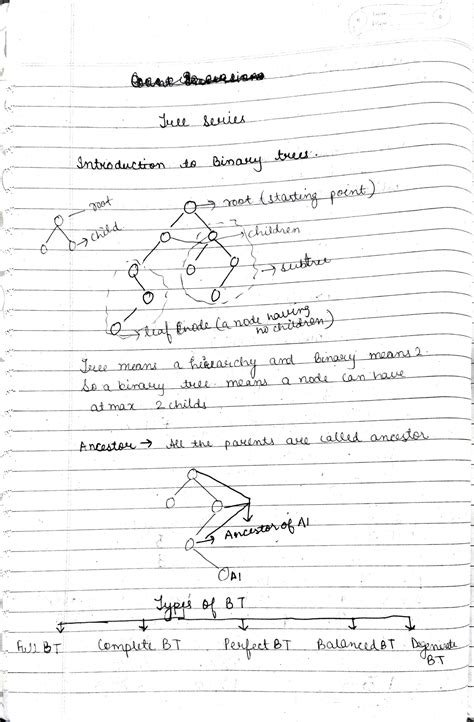 Tree Series
Introduction to Binary trees.
root
child
root (starting point)
children
subtree
leaf node (a node having
no children)
Tree means a hierarchy and Binary means 2
So a binary tree means a node can have
at max 2 childs
Ancestor → All the parents are called ancestor
Ancestor of A1
A1
Types of BT
Full BT Complete BT Perfect BT Balanced BT Degenerate
BT